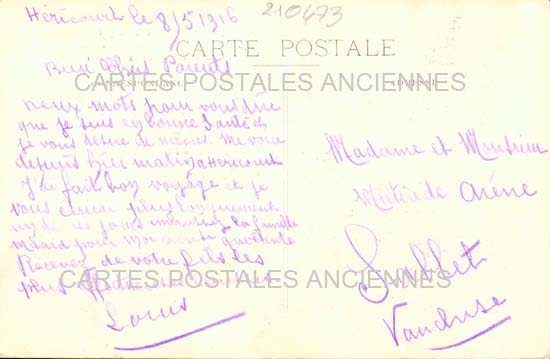 Héricourt le 8/5 1916
210473
CARTE POSTALE
CORRESPONDANCE
ADRESSE
CARTES POSTALES ANCIENNES
Bien Chers Parents
Deux mots pour vous dire
que je suis en bonne santé et
je vous désire de mêmes. Me voici
depuis hier matin a Hericourt
J'ai fait bon voyage et je
vous plus longuement
un de ces jours la famille
pour moi
Recevez de votre fils les
plus
Louis
Madame et Monsieur
Arène
Sablet
Vaucluse
CARTES POSTALES ANCIENNES